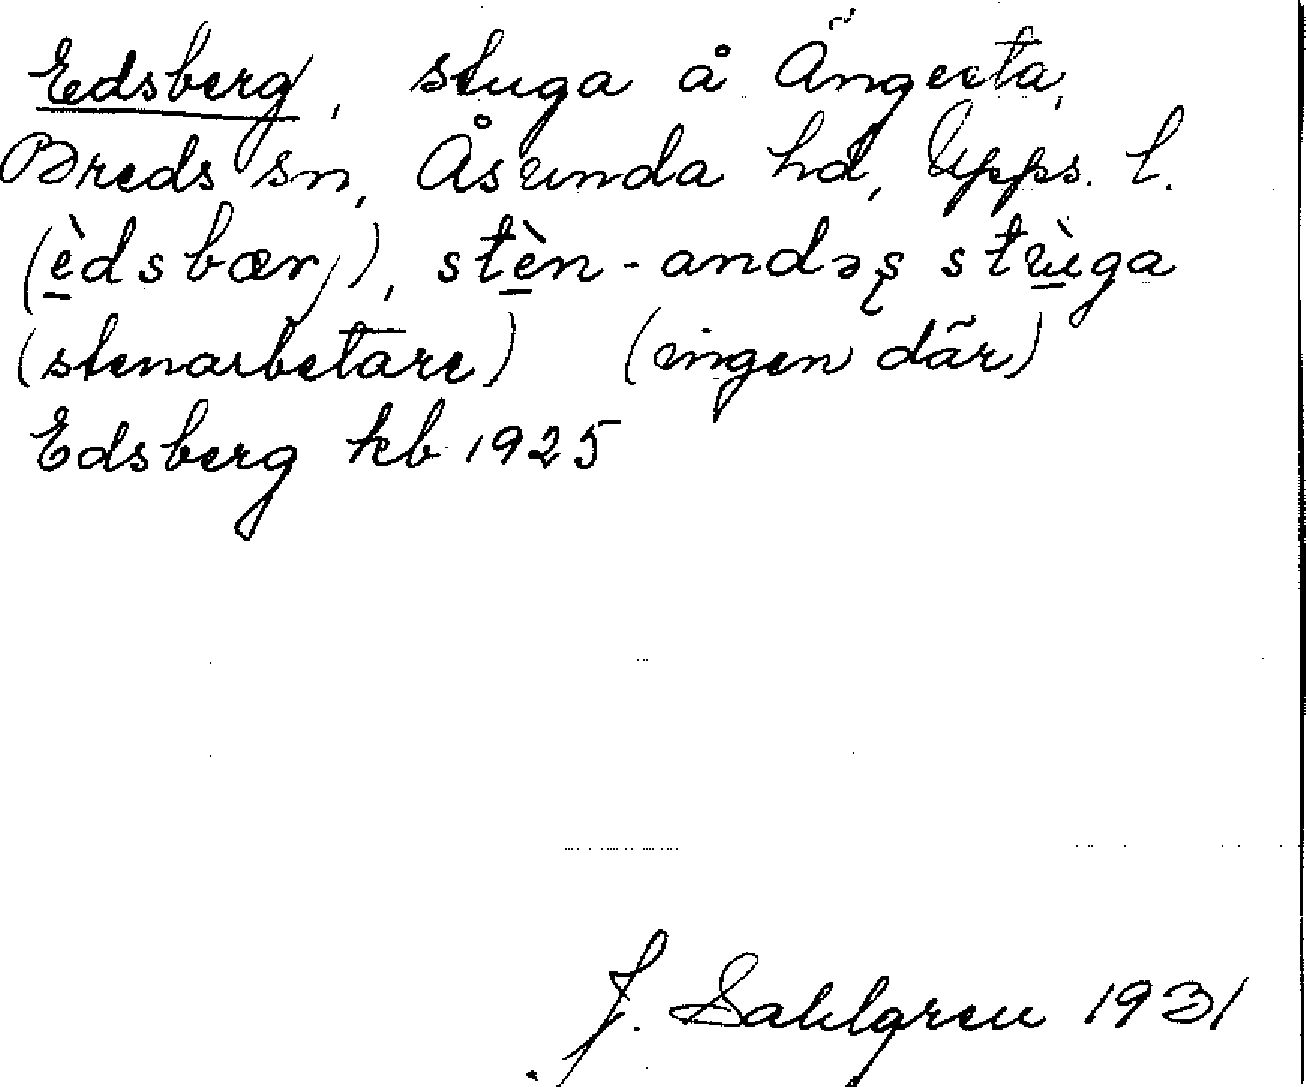 Edsberg, stuga å Ängeeta,
Breds sn, Åsunda hd, Upps. l.
(èdsbærj), stèn-andəş stùga
(stenarbetare) (ingen där)
Edsberg kb 1925
J. Sahlgren 1931